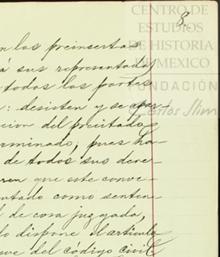 CENTRO DE
ESTUDIOS
DE HISTORIA
DE MEXICO
FUNDACIÓN
Carlos Slim
8.
en los preinsertos
á sus representados
todos los partes
: desisten y se apar
cion del precitado
ominado, pues ha
de todos sus dere
que este conve
ntado como senten
de cosa juzgada,
lo dispone el artículo
ve del código civil